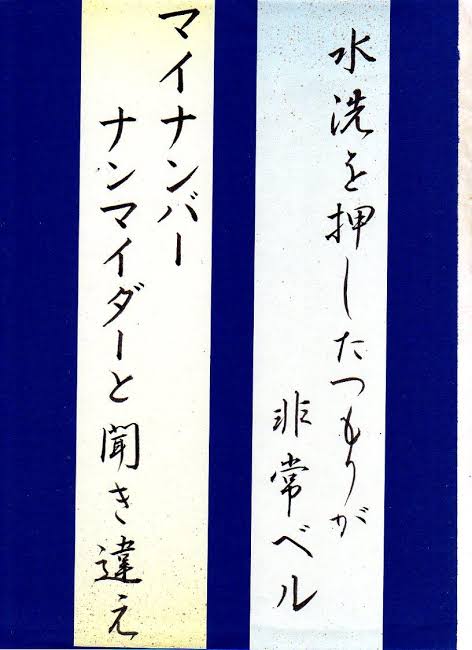 水洗を押したつもりが
非常ベル
マイナンバー
ナンマイダーと聞き違え